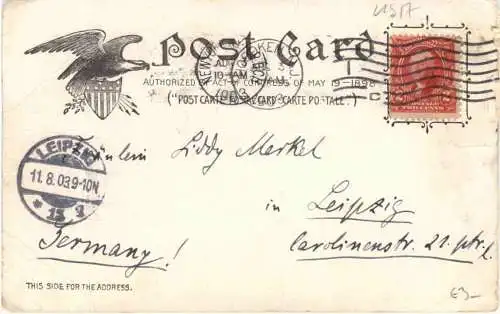 USA
Post Card
AUTHORIZED BY ACT OF CONGRESS OF MAY 19-1898
("POST CARTE POSTALE CARD-CARTE POSTALE")
10-AM
1903
LEIPZIG
11.8.03.9-10N
* 13
Fräulein Liddy Merkel
in Leipzig
Germany! Carolinenstr. 21. ptr. l.
THIS SIDE FOR THE ADDRESS.
£3-